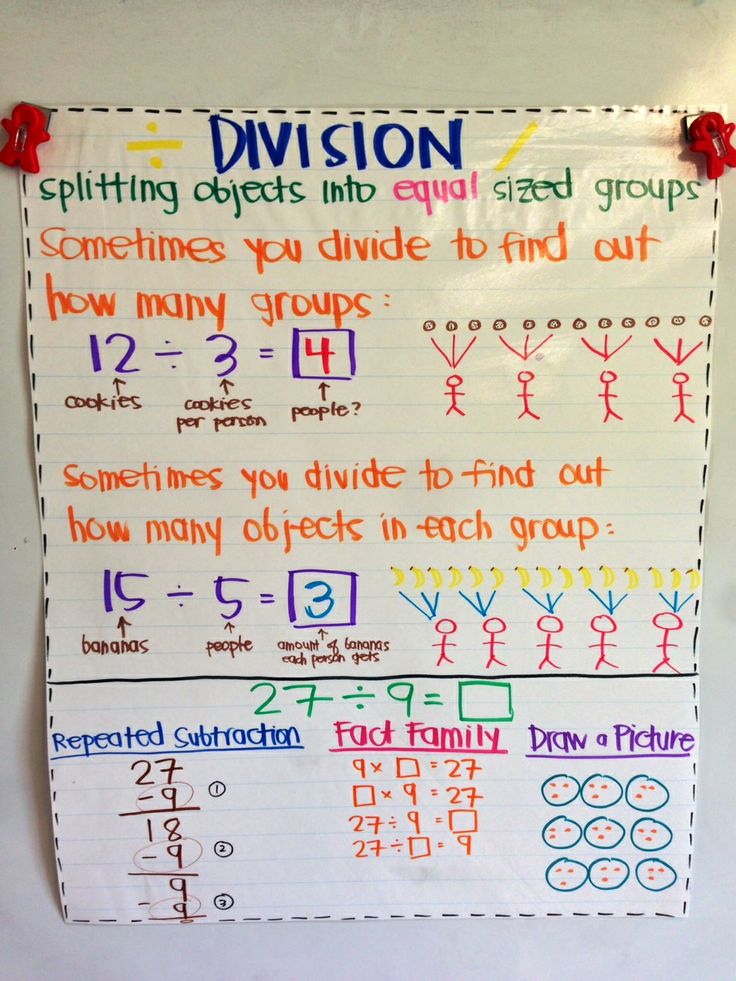 ÷ DIVISION /
splitting objects into equal sized groups
Sometimes you divide to find out
how many groups:
12 ÷ 3 = 4
cookies
cookies
per person
people?
Sometimes you divide to find out
how many objects in each group:
15 ÷ 5 = 3
bananas
people
amount of bananas
each person gets
27 ÷ 9 = □
Repeated Subtraction
27
- 9 ①
18
- 9 ②
9
- 9 ③
Fact Family
9 × □ = 27
□ × 9 = 27
27 ÷ 9 = □
27 ÷ □ = 9
Draw a Picture